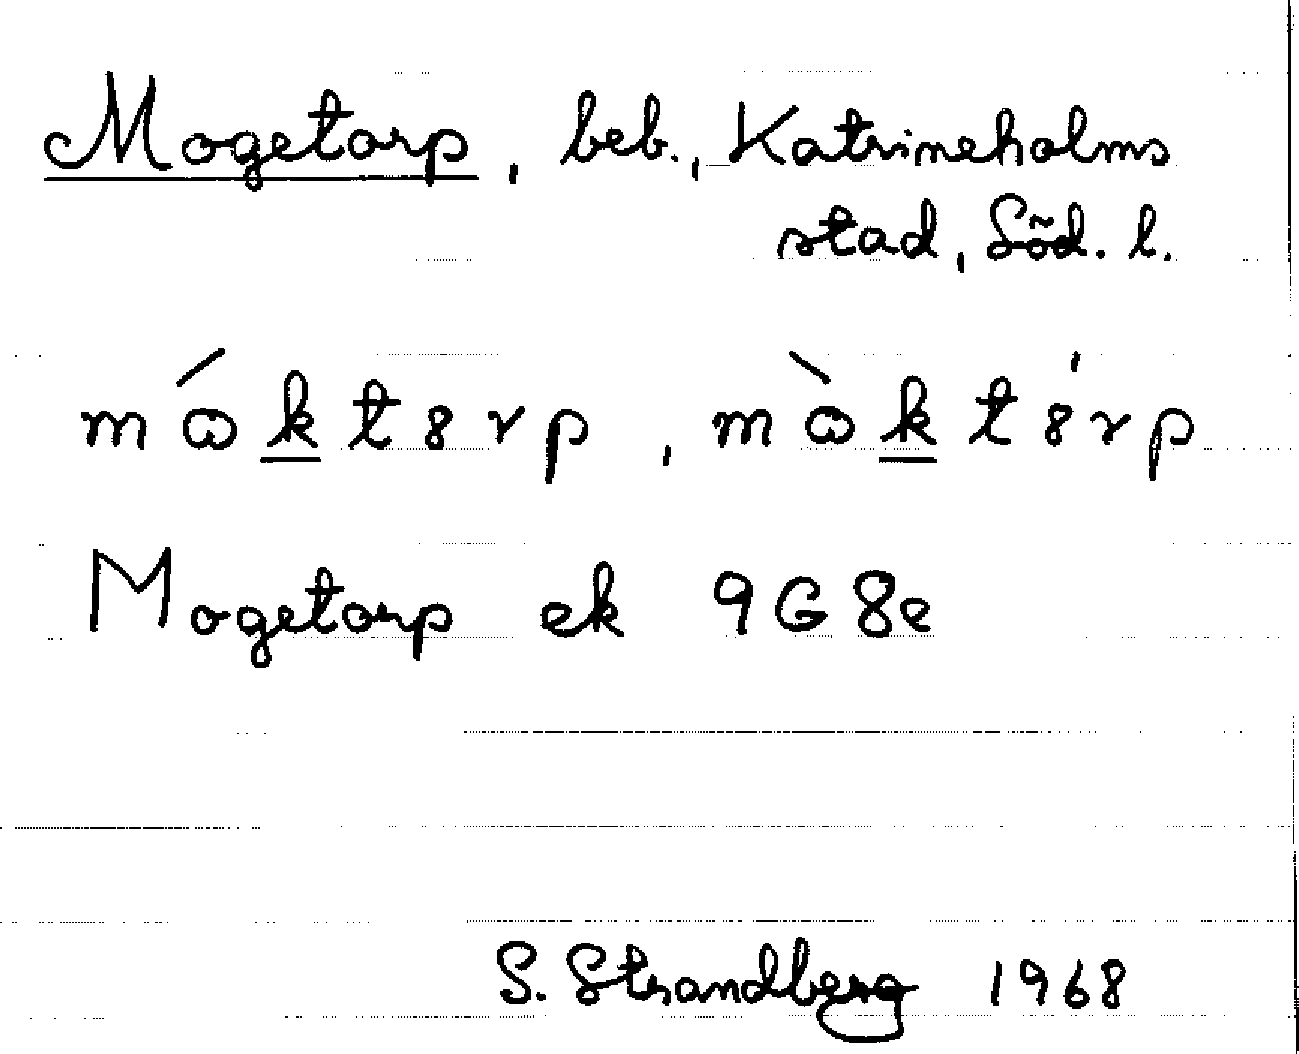 Mogetorp, beb., Katrineholms
stad, Söd. l.
mɷ́k̲t8rp, mɷ̀k̲t8́rp
Mogetorp ek 9G8e
S. Strandberg 1968